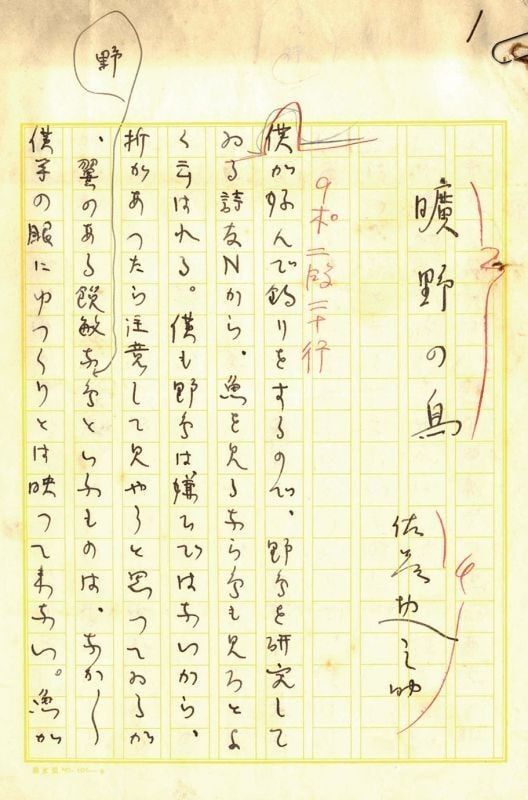 1
2
曠野の鳥
4
佐藤惣之助
9ポ二段二十行
僕が好んで釣りをするので、野鳥を研究して
ゐる詩友Nから、魚を見るなら鳥も見ろとよ
く云はれる。僕も野鳥は嫌ひではないから、
折があつたら注意して見やうと思つてゐるが
野
、翼のある鋭敏な鳥といふものは、なか〱
僕等の眼にゆつくりとは映つて来ない。魚が